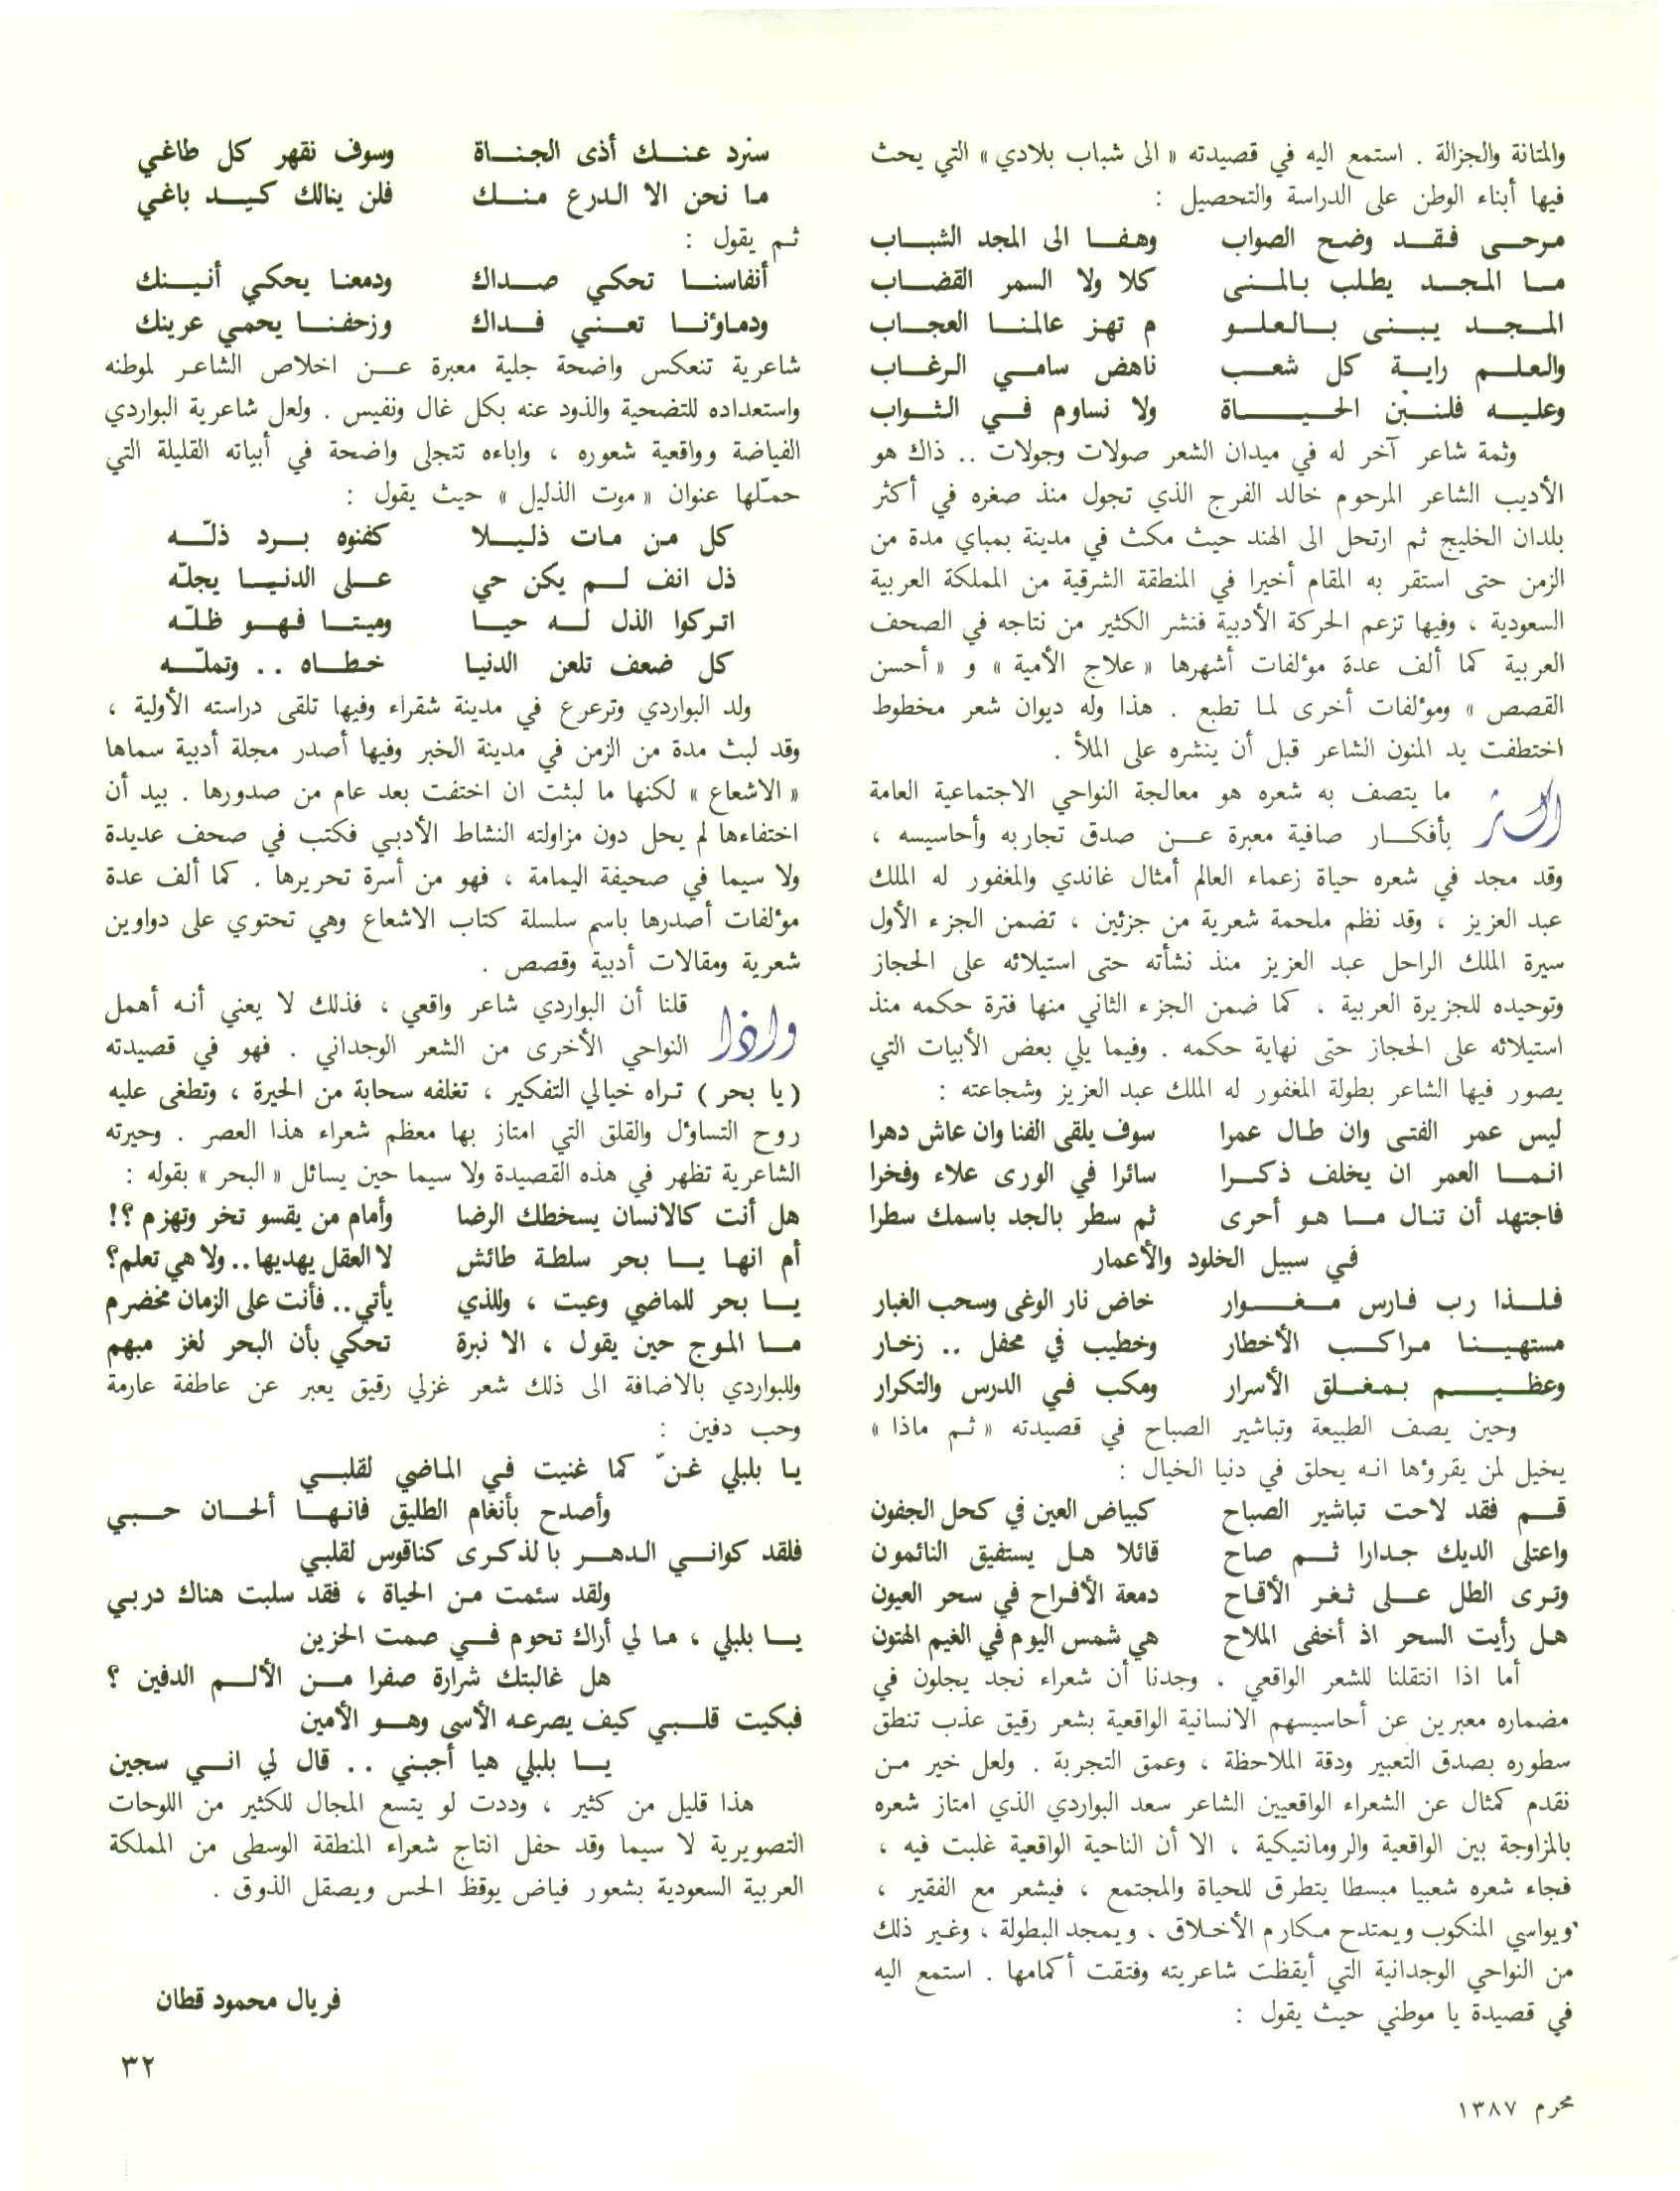 والمتانة والجزالة . استمع اليه في قصيدته « الى شباب بلادي » التي يحث
فيها أبناء الوطن على الدراسة والتحصيل :
مرحى فقد وضح الصواب وهفا الى المجد الشباب
ما المجد يطلب بالمنى كلا ولا السمر القضاب
المجد يبنى بالعلو م تهز عالمنا العجاب
والعلم راية كل شعب ناهض سامي الرغاب
وعليه فلنبن الحياة ولا نساوم في الثواب
وثمة شاعر آخر له في ميدان الشعر صولات وجولات .. ذاك هو
الأديب الشاعر المرحوم خالد الفرج الذي تجول منذ صغره في أكثر
بلدان الخليج ثم ارتحل الى الهند حيث مكث في مدينة بمباي مدة من
الزمن حتى استقر به المقام أخيرا في المنطقة الشرقية من المملكة العربية
السعودية ، وفيها تزعم الحركة الأدبية فنشر الكثير من نتاجه في الصحف
العربية كما ألف عدة مؤلفات أشهرها « علاج الأمية » و « أحسن
القصص » ومؤلفات أخرى لما تطبع . هذا وله ديوان شعر مخطوط
اختطفت يد المنون الشاعر قبل أن ينشره على الملأ .
ما يتصف به شعره هو معالجة النواحي الاجتماعية العامة
بأفكار صافية معبرة عن صدق تجاربه وأحاسيسه ،
وقد مجد في شعره حياة زعماء العالم أمثال غاندي والمغفور له الملك
عبد العزيز ، وقد نظم ملحمة شعرية من جزئين ، تضمن الجزء الأول
سيرة الملك الراحل عبد العزيز منذ نشأته حتى استيلائه على الحجاز
وتوحيده للجزيرة العربية ، كما ضمن الجزء الثاني منها فترة حكمه منذ
استيلائه على الحجاز حتى نهاية حكمه . وفيما يلي بعض الأبيات التي
يصور فيها الشاعر بطولة المغفور له الملك عبد العزيز وشجاعته :
ليس عمر الفتى وان طال عمرا سوف يلقى الفنا وان عاش دهرا
انما العمر ان يخلف ذكرا سائرا في الورى علاء وفخرا
فاجتهد أن تنال ما هو أحرى ثم سطر بالجد باسمك سطرا
في سبيل الخلود والأعمار
فلذا رب فارس مغوار خاض نار الوغى وسحب الغبار
مستهينا مراكب الأخطار وخطيب في محفل .. زخار
وعظيم بمغلق الأسرار ومكب في الدرس والتكرار
وحين يصف الطبيعة وتباشير الصباح في قصيدته « ثم ماذا »
يخيل لمن يقرؤها انه يحلق في دنيا الخيال :
قم فقد لاحت تباشير الصباح كبياض العين في كحل الجفون
واعتلى الديك جدارا ثم صاح قائلا هل يستفيق النائمون
وترى الطل على ثغر الأقاح دمعة الأفراح في سحر العيون
هل رأيت السحر اذ أخفى الملاح هي شمس اليوم في الغيم الهتون
أما اذا انتقلنا للشعر الواقعي ، وجدنا أن شعراء نجد يجلون في
مضماره معبرين عن أحاسيسهم الانسانية الواقعية بشعر رقيق عذب تنطق
سطوره بصدق التعبير ودقة الملاحظة ، وعمق التجربة . ولعل خير من
نقدم كمثال عن الشعراء الواقعيين الشاعر سعد البواردي الذي امتاز شعره
بالمزاوجة بين الواقعية والرومانتيكية ، الا أن الناحية الواقعية غلبت فيه ،
فجاء شعره شعبيا مبسطا يتطرق للحياة والمجتمع ، فيشعر مع الفقير ،
ويواسي المنكوب ويمتدح مكارم الأخلاق ، ويمجد البطولة ، وغير ذلك
من النواحي الوجدانية التي أيقظت شاعريته وفتقت أكمامها . استمع اليه
في قصيدة يا موطني حيث يقول :
سنرد عنك أذى الجناة وسوف نقهر كل طاغي
ما نحن الا الدرع منك فلن ينالك كيد باغي
ثم يقول :
أنفاسنا تحكي صداك ودمعنا يحكي أنينك
ودماؤنا تعني فداك وزحفنا يحمي عرينك
شاعرية تنعكس واضحة جلية معبرة عن اخلاص الشاعر لموطنه
واستعداده للتضحية والذود عنه بكل غال ونفيس . ولعل شاعرية البواردي
الفياضة وواقعية شعوره ، واباءه تتجلى واضحة في أبياته القليلة التي
حمّلها عنوان « موت الذليل » حيث يقول :
كل من مات ذليلا كفنوه برد ذلّه
ذل انف لم يكن حي على الدنيا يجلّه
اتركوا الذل له حيا وميتا فهو ظلّه
كل ضعف تلعن الدنيا خطاه .. وتملّه
ولد البواردي وترعرع في مدينة شقراء وفيها تلقى دراسته الأولية ،
وقد لبث مدة من الزمن في مدينة الخبر وفيها أصدر مجلة أدبية سماها
« الاشعاع » لكنها ما لبثت ان اختفت بعد عام من صدورها . بيد أن
اختفاءها لم يحل دون مزاولته النشاط الأدبي فكتب في صحف عديدة
ولا سيما في صحيفة اليمامة ، فهو من أسرة تحريرها . كما ألف عدة
مؤلفات أصدرها باسم سلسلة كتاب الاشعاع وهي تحتوي على دواوين
شعرية ومقالات أدبية وقصص .
واذا قلنا أن البواردي شاعر واقعي ، فذلك لا يعني أنه أهمل
النواحي الأخرى من الشعر الوجداني . فهو في قصيدته
( يا بحر ) تراه خيالي التفكير ، تغلفه سحابة من الحيرة ، وتطغى عليه
روح التساؤل والقلق التي امتاز بها معظم شعراء هذا العصر . وحيرته
الشاعرية تظهر في هذه القصيدة ولا سيما حين يسائل « البحر » بقوله :
هل أنت كالانسان يسخطك الرضا وأمام من يقسو تخر وتهزم ؟!
أم انها يا بحر سلطة طائش لا العقل يهديها .. ولا هي تعلم ؟
يا بحر للماضي وعيت ، وللذي يأتي .. فأنت على الزمان مخضرم
ما الموج حين يقول ، الا نبرة تحكي بأن البحر لغز مبهم
وللبواردي بالاضافة الى ذلك شعر غزلي رقيق يعبر عن عاطفة عارمة
وحب دفين :
يا بلبلي غنّ كما غنيت في الماضي لقلبي
وأصدح بأنغام الطليق فانها ألحان حبي
فلقد كواني الدهر بالذكرى كناقوس لقلبي
ولقد سئمت من الحياة ، فقد سلبت هناك دربي
يا بلبلي ، ما لي أراك تحوم في صمت الحزين
هل غالبتك شرارة صفرا من الألم الدفين ؟
فبكيت قلبي كيف يصرعه الأسى وهو الأمين
يا بلبلي هيا أجبني .. قال لي اني سجين
هذا قليل من كثير ، وددت لو يتسع المجال للكثير من اللوحات
التصويرية لا سيما وقد حفل انتاج شعراء المنطقة الوسطى من المملكة
العربية السعودية بشعور فياض يوقظ الحس ويصقل الذوق .
فريال محمود قطان
٣٢
محرم ١٣٨٧